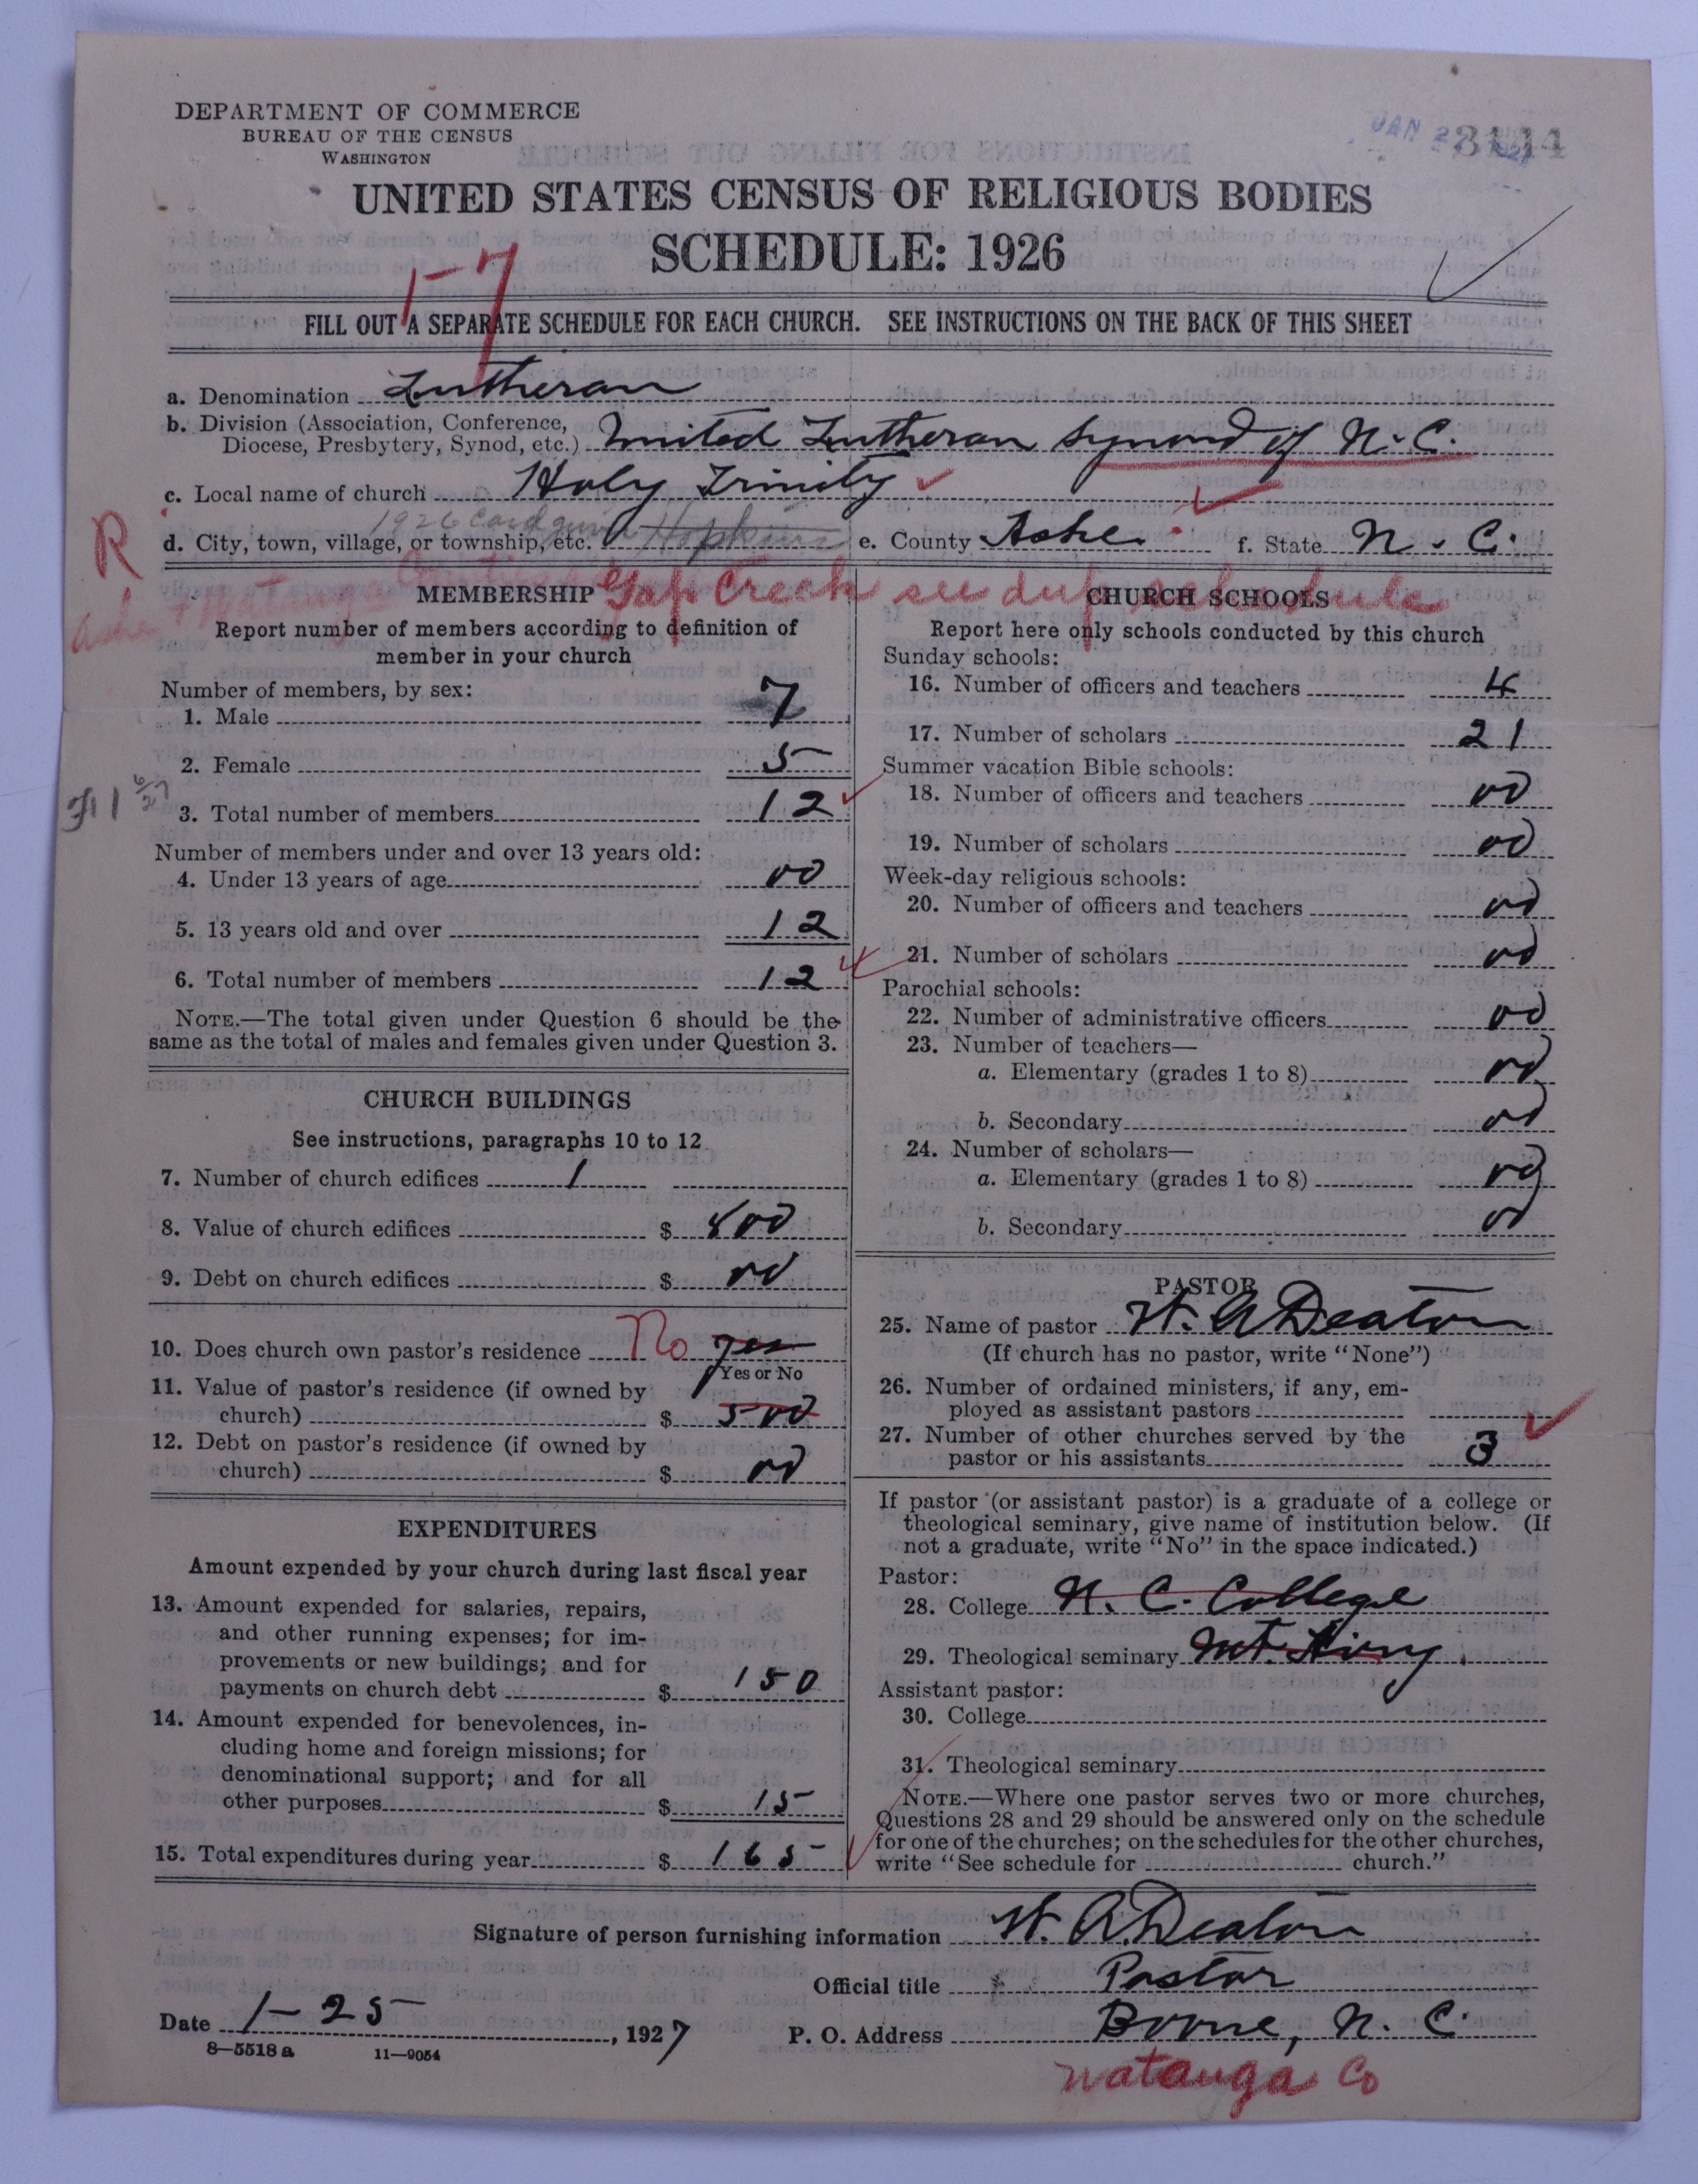 DEPARTMENT OF COMMERCE
BUREAU OF THE CENSUS
WASHINGTON
UNITED STATES CENSUS OF RELIGIOUS BODIES
SCHEDULE: 1926
1-7
FILL OUT A SEPARATE SCHEDULE FOR EACH CHURCH. SEE INSTRUCTIONS ON THE BACK OF THIS SHEET
a. Denomination Lutheran
b. Division (Association, Conference,
Diocese, Presbytery, Synod, etc.) United Lutheran Synond of N.C.
c. Local name of church Holy Trinity
1926 Card
R d. City, town, village, or township, etc. Hopkins e. County Ashe f. State N.C.
Gap Creek see dup schedule
Ashe + Watauga
MEMBERSHIP
Report number of members according to definition of
member in your church
Number of members, by sex:
1. Male 7
2. Female 5
3. Total number of members 12
Number of members under and over 13 years old:
4. Under 13 years of age 00
5. 13 years old and over 12
6. Total number of members 12
NOTE.—The total given under Question 6 should be the
same as the total of males and females given under Question 3.
CHURCH BUILDINGS
See instructions, paragraphs 10 to 12
7. Number of church edifices 1
8. Value of church edifices $ 800
9. Debt on church edifices $ 00
10. Does church own pastor's residence No yes
Yes or No
11. Value of pastor's residence (if owned by
church) $ 500
12. Debt on pastor's residence (if owned by
church) $ 00
EXPENDITURES
Amount expended by your church during last fiscal year
13. Amount expended for salaries, repairs,
and other running expenses; for im-
provements or new buildings; and for
payments on church debt $ 150
14. Amount expended for benevolences, in-
cluding home and foreign missions; for
denominational support; and for all
other purposes $ 15
15. Total expenditures during year $ 165
CHURCH SCHOOLS
Report here only schools conducted by this church
Sunday schools:
16. Number of officers and teachers 4
17. Number of scholars 21
Summer vacation Bible schools:
18. Number of officers and teachers 00
19. Number of scholars 00
Week-day religious schools:
20. Number of officers and teachers 00
21. Number of scholars 00
Parochial schools:
22. Number of administrative officers 00
23. Number of teachers—
a. Elementary (grades 1 to 8) 00
b. Secondary 00
24. Number of scholars—
a. Elementary (grades 1 to 8) 00
b. Secondary 00
PASTOR
25. Name of pastor W. A. Deaton
(If church has no pastor, write "None")
26. Number of ordained ministers, if any, em-
ployed as assistant pastors
27. Number of other churches served by the
pastor or his assistants 3
If pastor (or assistant pastor) is a graduate of a college or
theological seminary, give name of institution below. (If
not a graduate, write "No" in the space indicated.)
Pastor:
28. College N. C. College
29. Theological seminary Mt. Airy
Assistant pastor:
30. College
31. Theological seminary
NOTE.—Where one pastor serves two or more churches,
Questions 28 and 29 should be answered only on the schedule
for one of the churches; on the schedules for the other churches,
write "See schedule for church."
Signature of person furnishing information W. A. Deaton
Official title Pastor
Date 1-25, 1927 P. O. Address Boone, N. C.
8—5518 a 11—9054
Watauga Co